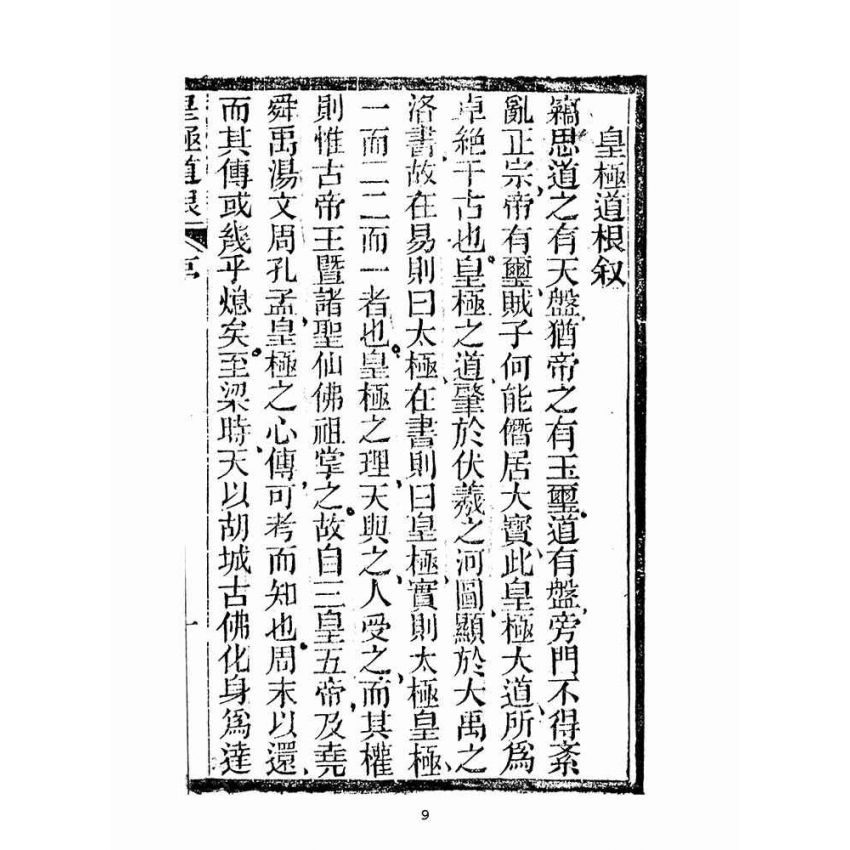 皇極道根叙
竊思道之有天盤猶帝之有玉璽道有盤旁門不得紊
亂正宗帝有璽賊子何能僭居大寶此皇極大道所爲
卓絶千古也皇極之道肇於伏羲之河圖顯於大禹之
洛書故在易則曰太極在書則曰皇極實則太極皇極
一而二二而一者也皇極之理天與之人受之而其權
則惟古帝王暨諸聖仙佛祖掌之故自三皇五帝及堯
舜禹湯文周孔孟皇極之心傳可考而知也周末以還
而其傳或幾乎熄矣至梁時天以胡城古佛化身爲達
皇極道根
序
一
9